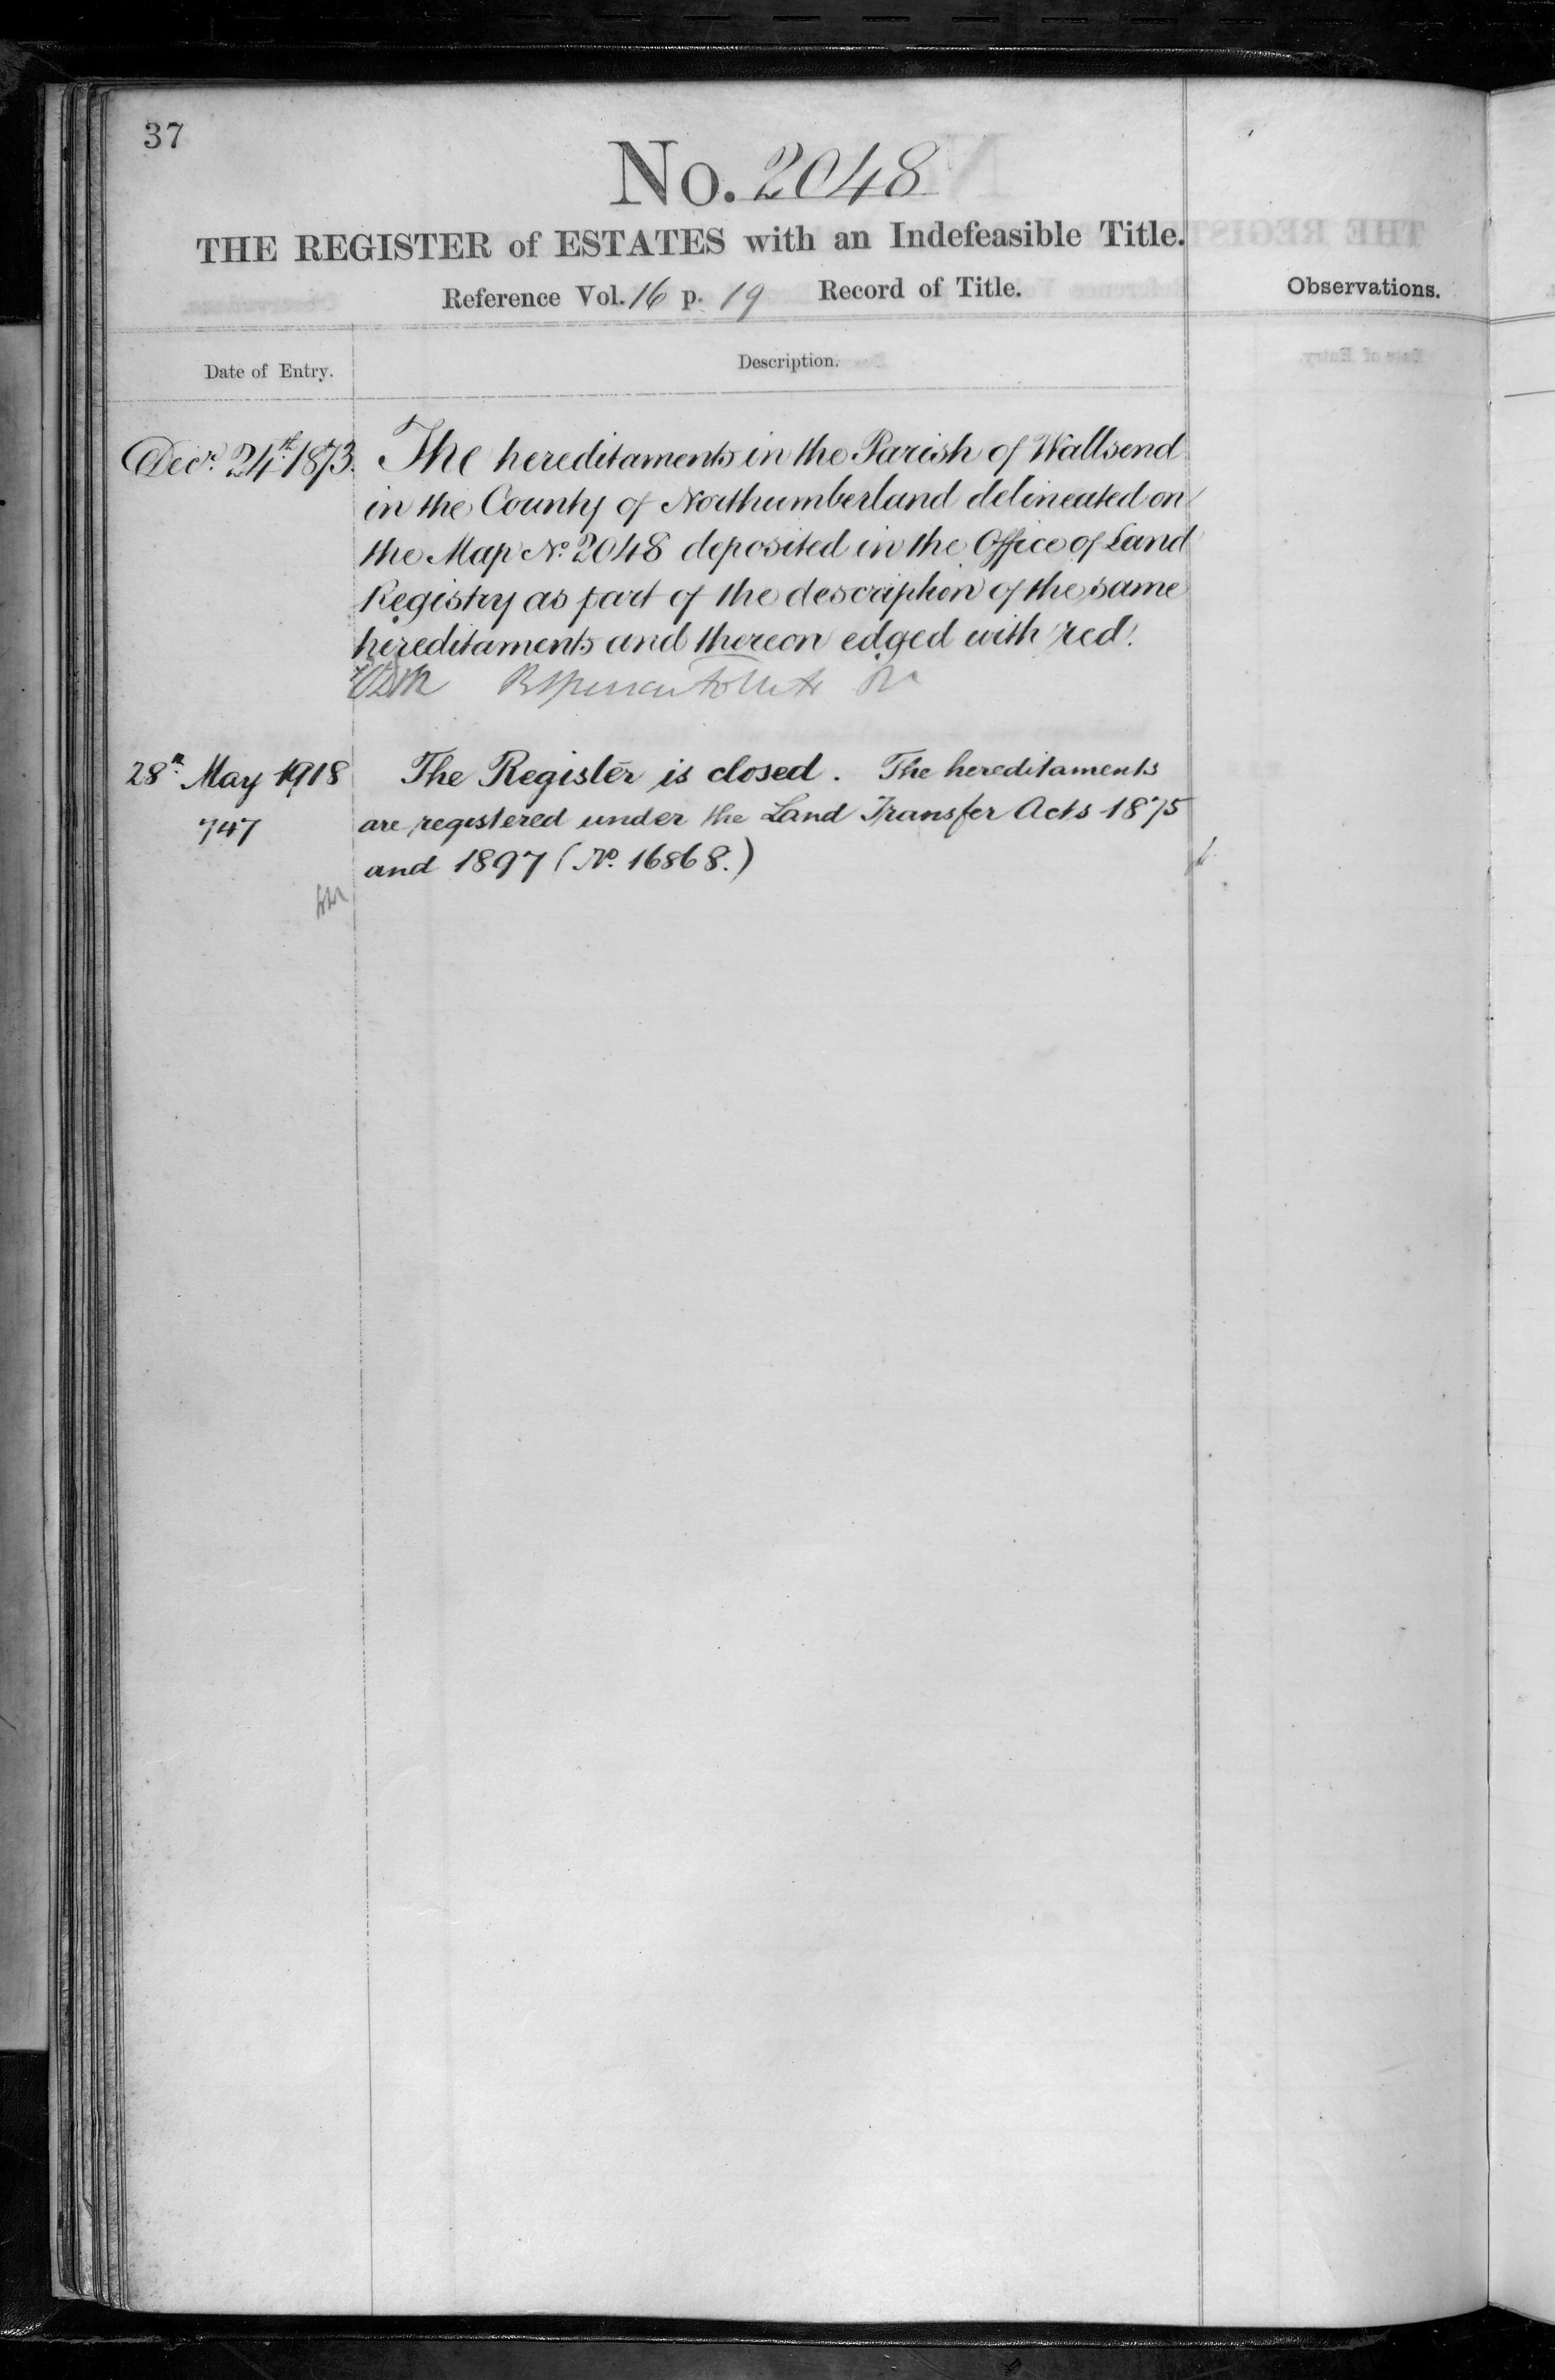 37
No. 2048
THE REGISTER of ESTATES with an Indefeasible Title.
Reference Vol. 16 p. 19 Record of Title.
Observations.
Date of Entry.
Description.
Decr. 24th. 1873. The hereditaments in the Parish of Wallsend
in the County of Northumberland delineated on
the Map No. 2048 deposited in the Office of Land
Registry as part of the description of the same
hereditaments and thereon edged with red.
28th. May 1918 The Register is closed. The hereditaments
747 are registered under the Land Transfer Acts 1875
and 1897 (No. 16868.)